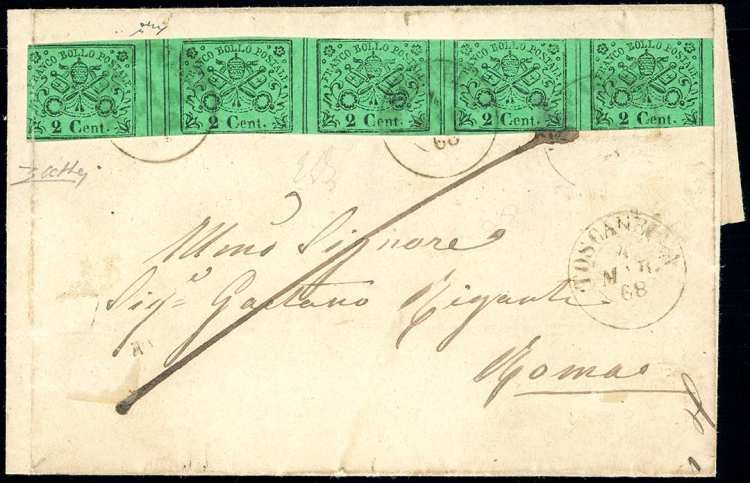 FRANCO BOLLO POSTALE FRANCO BOLLO POSTALE FRANCO BOLLO POSTALE FRANCO BOLLO POSTALE FRANCO BOLLO POSTALE
2 Cent. 2 Cent. 2 Cent. 2 Cent. 2 Cent.
68
Illmo Signore
Sigr Gaetano Giganti
Roma
TOSCANELLA
MAR.
68